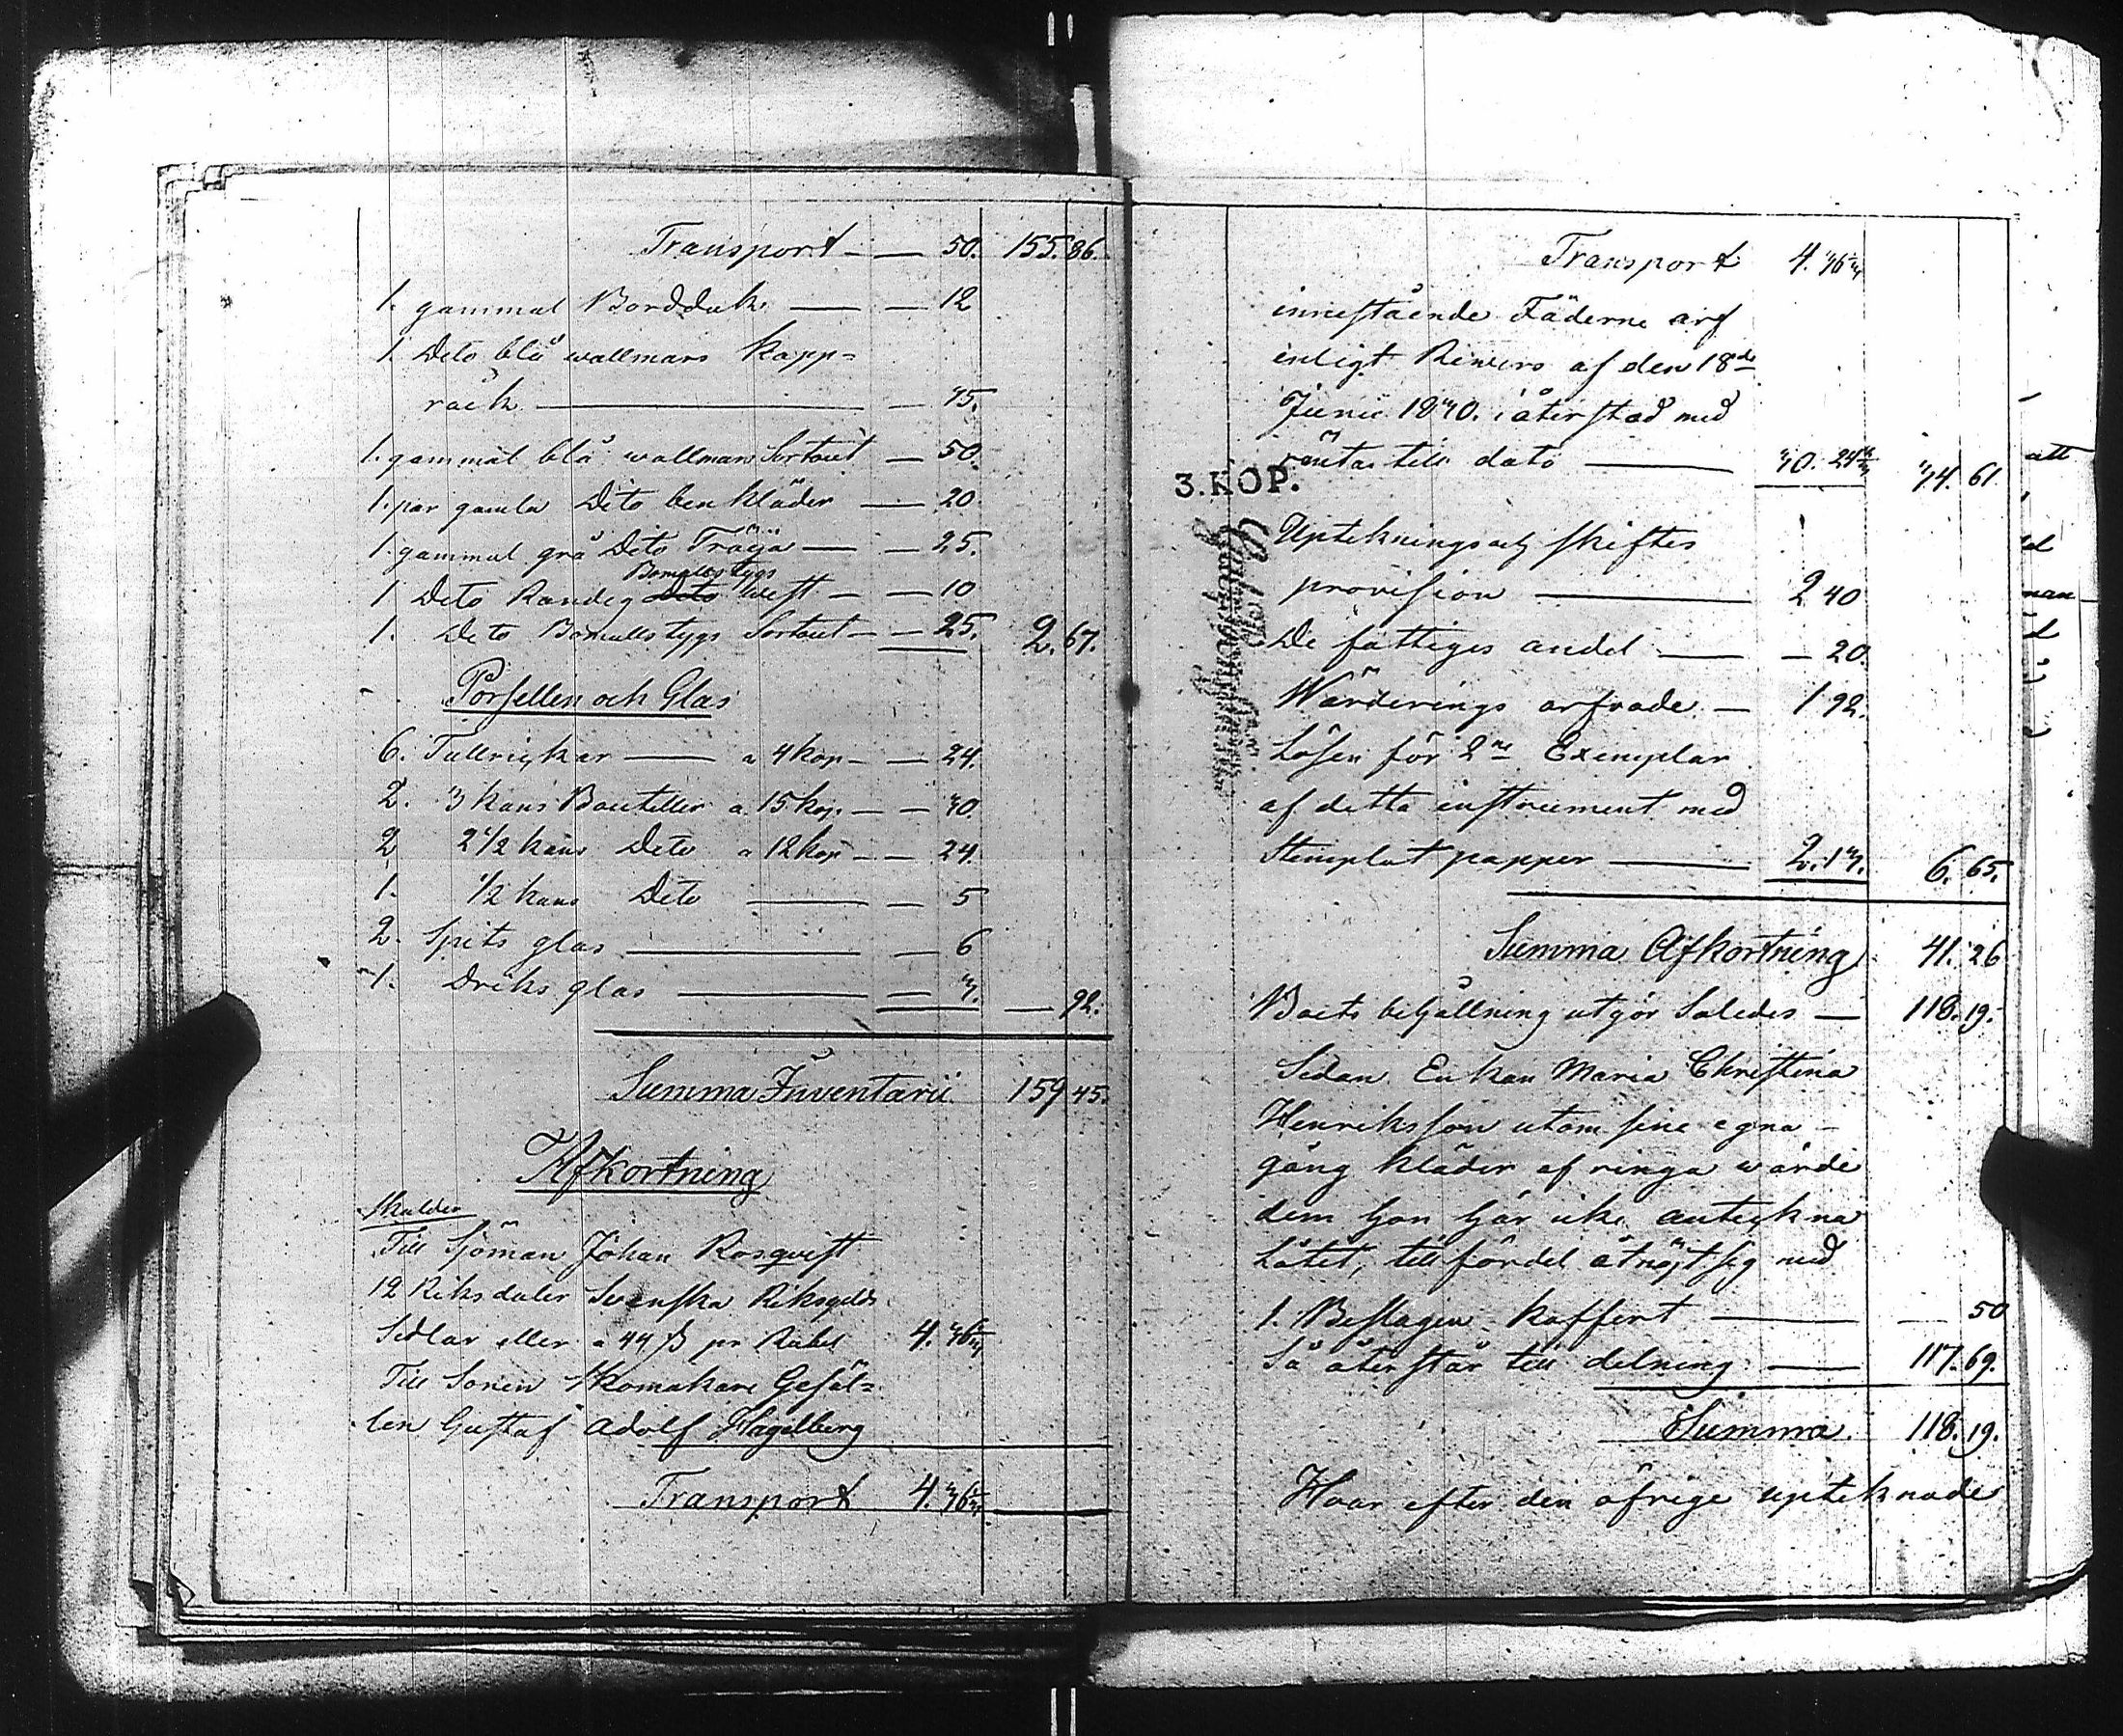 Transport — — 50. 155. 86.
1. gammal Bordduk — — 12
1 Dito blå wallmars Kapp=
råck — — 75.
1. gammal blå wallmans Sortout — 50.
1. par gamla Dito benkläder — 20
1. gammal grå Dito Tröja — — 25.
Bomulls tygs
1 Dito Randig Dito West — — 10
1. Dito Bomulls tygs Sortout — — 25. 2. 67.
Porsellen och Glas
6. Tallrickar — a 4 kop — — 24.
2. 3 kans Bouteller a 15 kop. — — 30.
2 2 1/2 kans Dito a 12 kop — — 24.
1. 1/2 kans Dito — — 5
2. Spits glas — — 6
1. Driks glas — — 3. — 92.
Summa Inventarii 159 45.
Afkortning
Skulder
Till Sjöman Johan Rosqvist
12 Riksdaler Svenska Riksgelds
Sedlar eller a 44 ß pr Rubel 4. 36
Till Sonen Skomakare Gesäl=
len Gustaf Adolf Hagelberg
Transport 4. 36
Transport 4. 36
innestående Fäderne arf
enligt Rewers af den 18de
Junii 1830. i återstod med
räntas till dato — 30. 24 34. 61
3. KOP.
Upteknings och skiftes
provision — 2 40
De fattiges andel — — 20.
Wärderings arfvode — 1 92.
Lösen för 2ne Exemplar
af detta instrument med
Stemplat papper — 2. 13. 6. 65.
Summa Afkortning 41. 26
Boets behållning utgör Saledes — 118. 19.
Sedan Enkan Maria Christina
Henriksson utom sine egna
gång kläder af ringa wärde
dem hon här icke anteckna
Låtet, till fördel åtnöjt sig med
1. Beslagen Koffert — — 50
Så återstår till delning — 117. 69.
Summa 118. 19.
Hvar efter den öfrige uptecknade